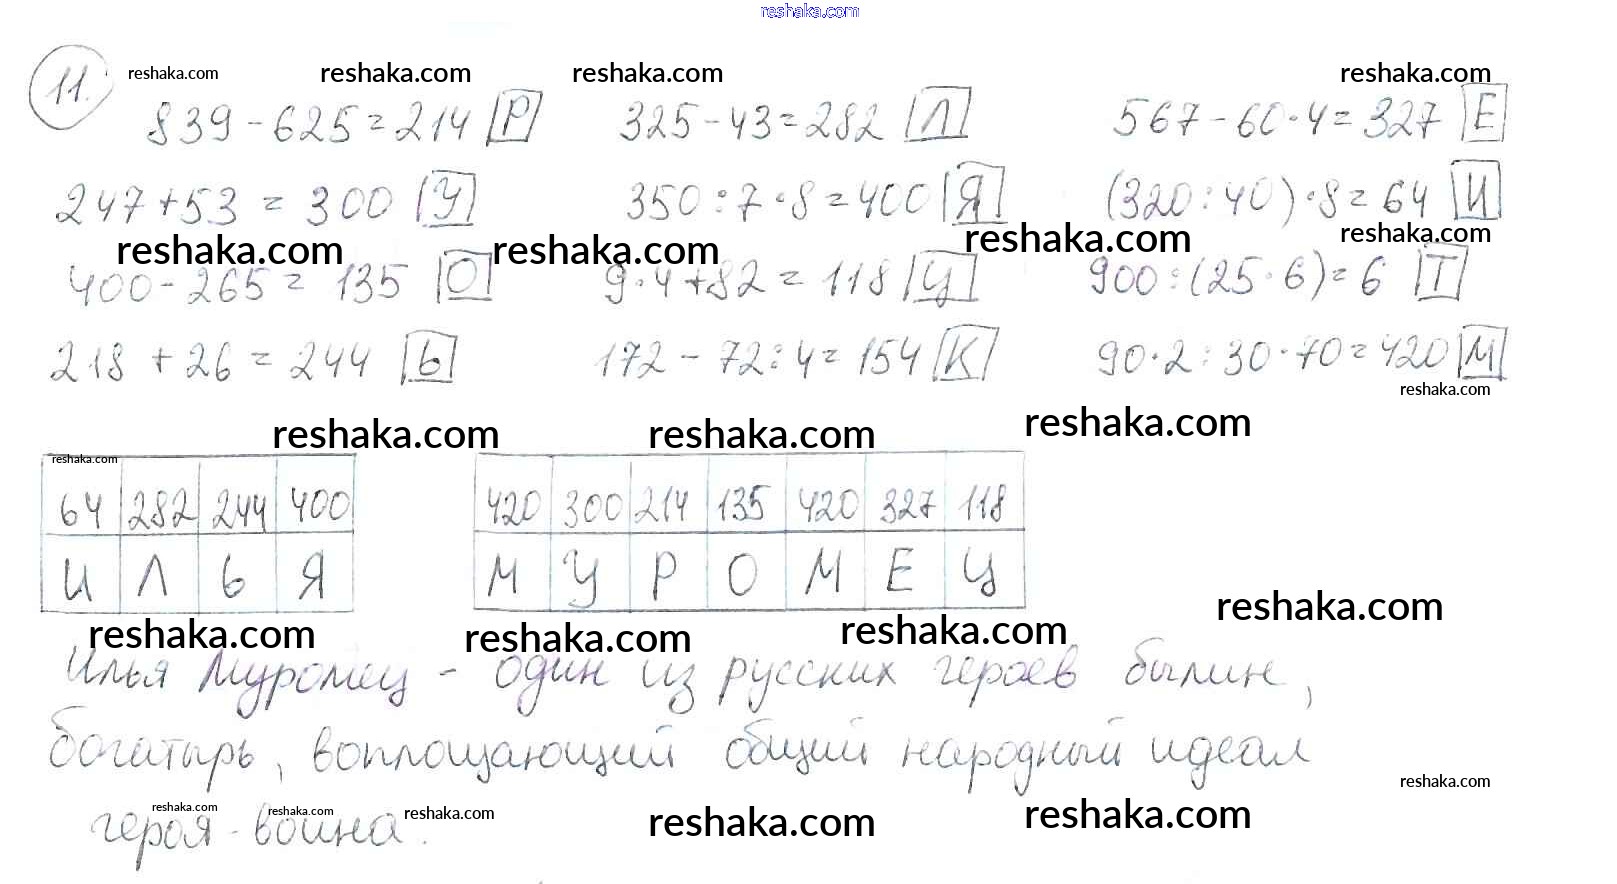 reshaka.com
11.
reshaka.com reshaka.com reshaka.com reshaka.com
839 - 625 = 214 Р 325 - 43 = 282 Л 567 - 60 · 4 = 327 Е
247 + 53 = 300 У 350 : 7 · 8 = 400 Я (320 : 40) · 8 = 64 И
reshaka.com reshaka.com reshaka.com reshaka.com
400 - 265 = 135 О 9 · 4 + 82 = 118 Ц 900 : (25 · 6) = 6 Т
218 + 26 = 244 Ь 172 - 72 : 4 = 154 К 90 · 2 : 30 · 70 = 420 М
reshaka.com
reshaka.com reshaka.com reshaka.com
reshaka.com
64 282 244 400 420 300 214 135 420 327 118
И Л Ь Я М У Р О М Е Ц
reshaka.com reshaka.com reshaka.com reshaka.com
Илья Муромец - один из русских героев былин,
богатырь, воплощающий общий народный идеал
reshaka.com
героя - воина.
reshaka.com reshaka.com reshaka.com reshaka.com reshaka.com